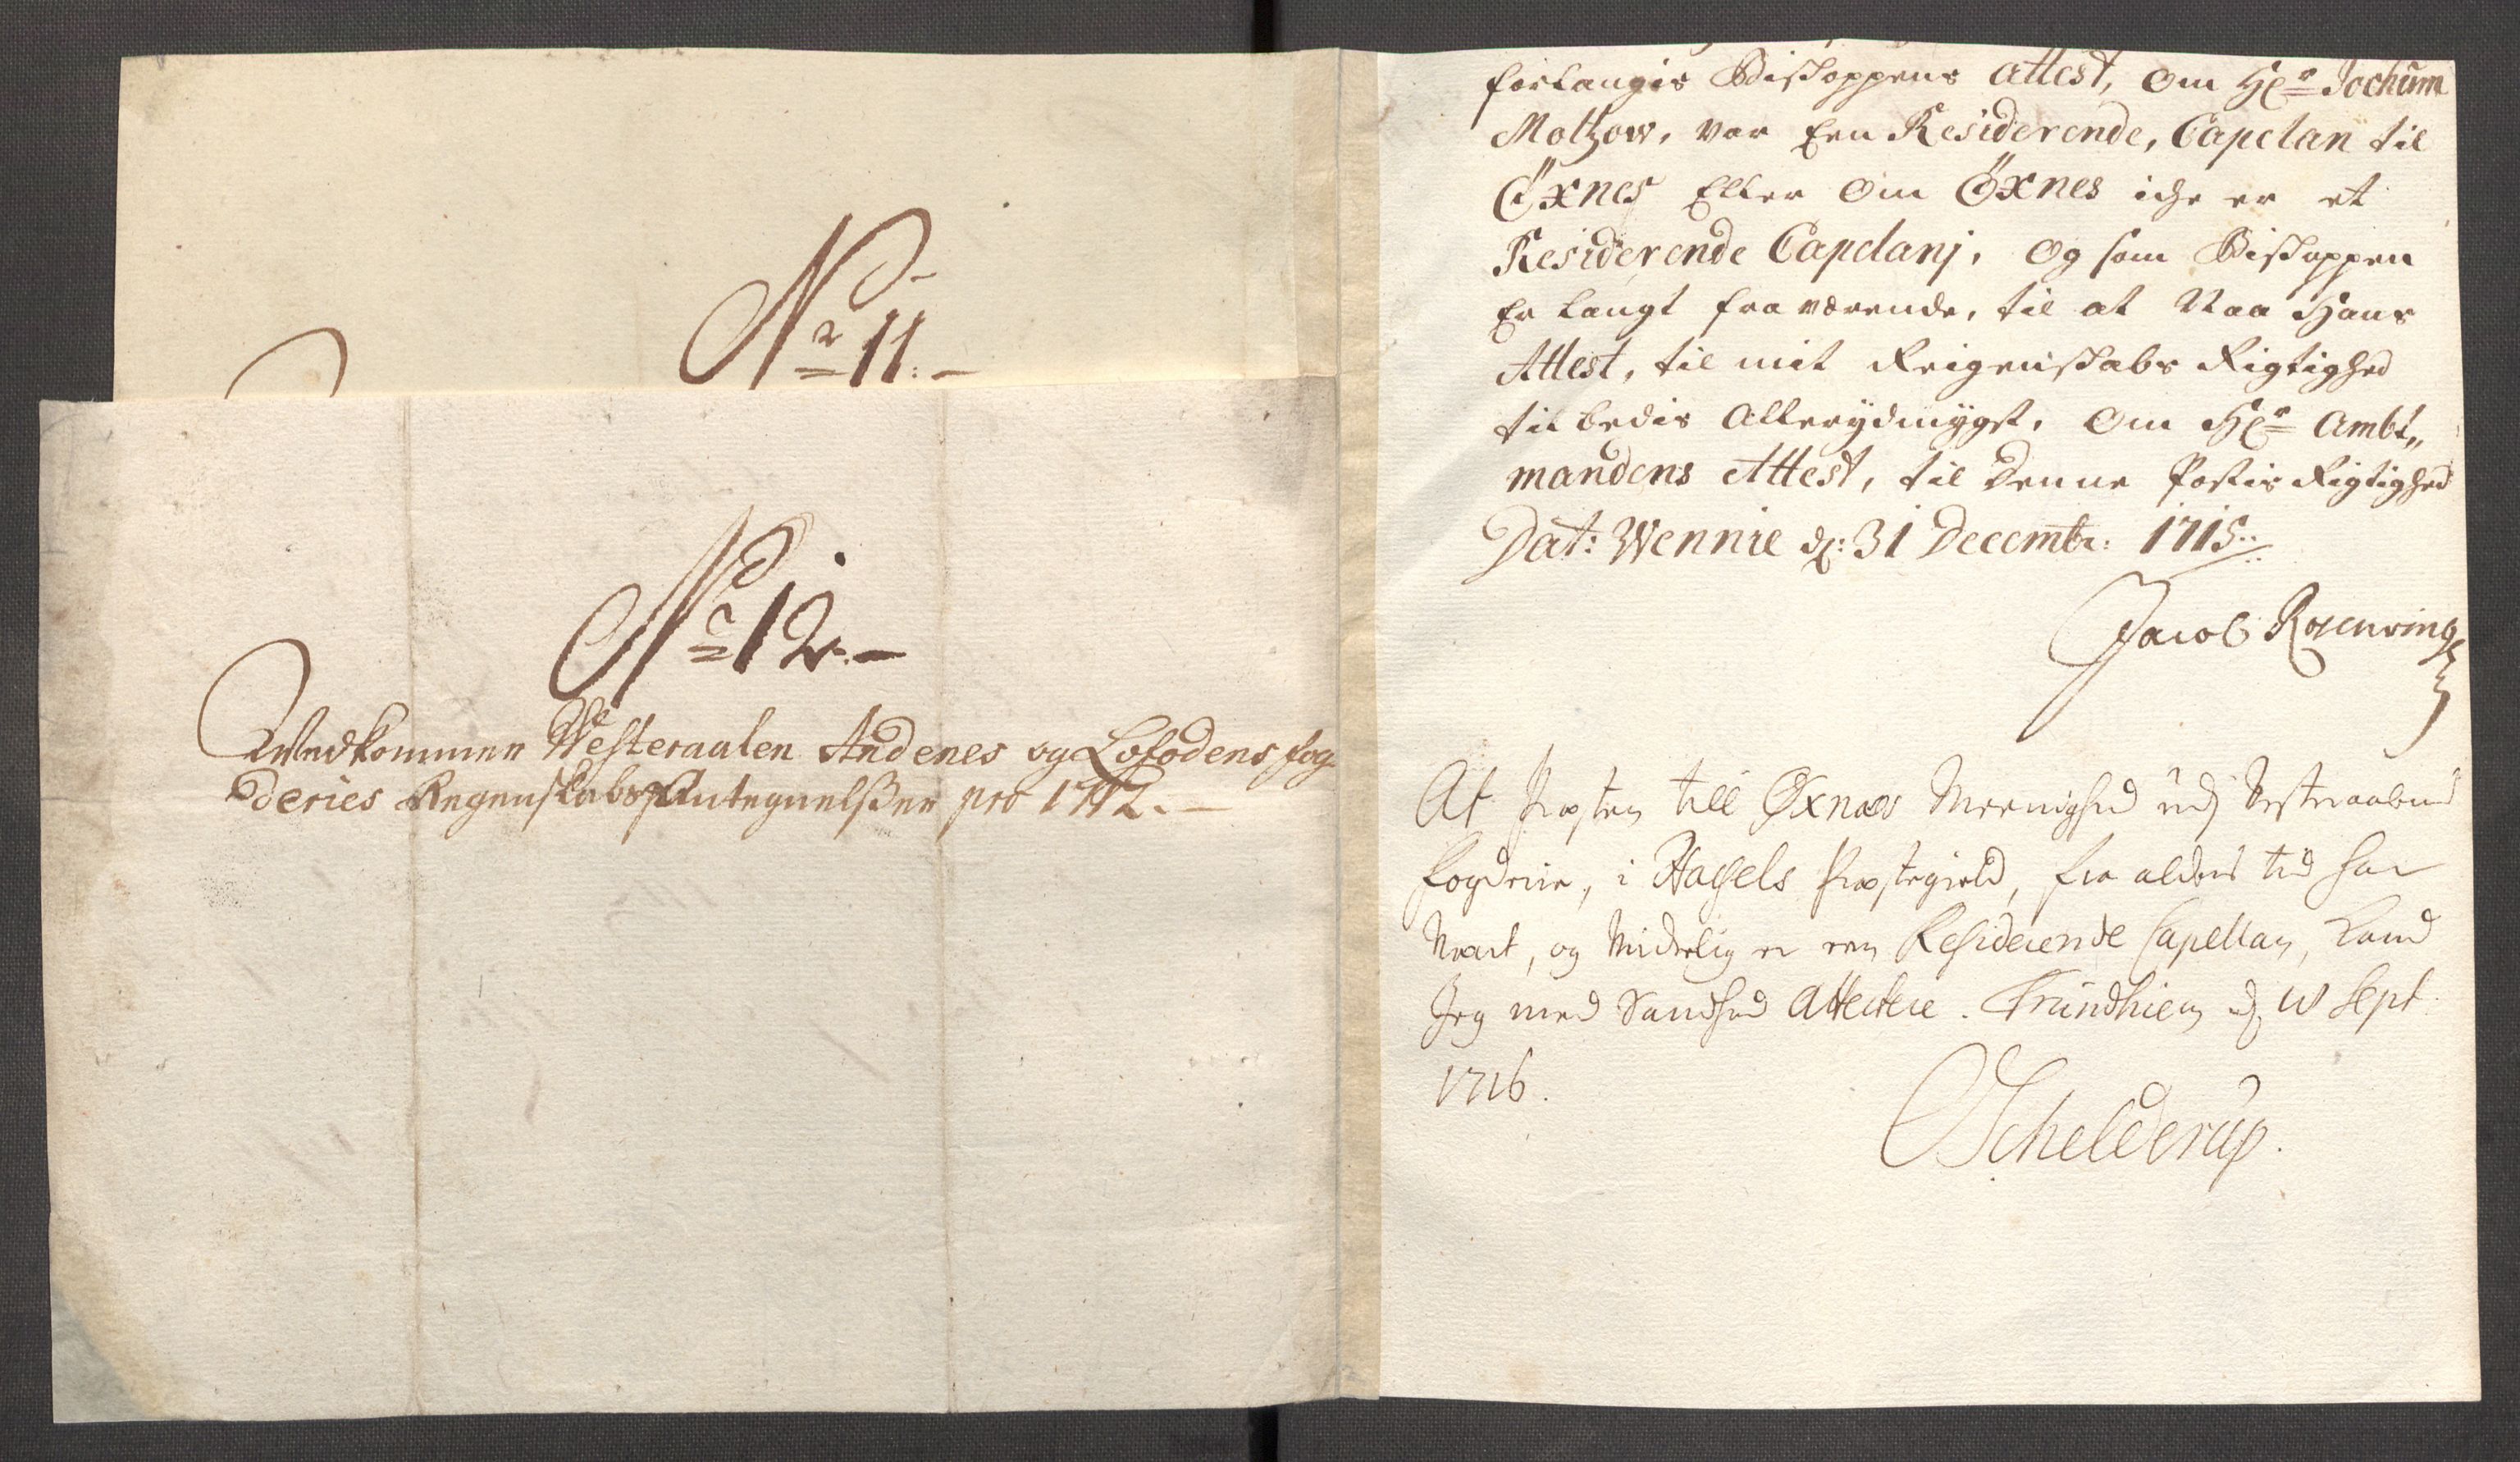 No 11.
No 12.
Vedkommer Westeraalen Andenes og Lofodens fog
deries Regenskabs Antegnelßer pro 1712.
forlangis Bisكoppens Attest, Om Hr Jochum
Moltzow, var Een Residerende, Capelan til
Öxnes Eller Om Öxnes iche er et
Residerende Capelanj, Og som Biskoppen
Er langt fraværende, til at Naa Hans
Attest, til mit Reigenskabs Rigtighed
til bedis Allerydmygst, Om Hr Ambt„
mandens Attest, til Denne Postis Rigtighed
Dat: Wennie d: 31 Decembr: 1715
Jacob Rosenving
At Præsten till Øxnæs Meenighed udj Vesteraalens
fogderie, i Hassels Præstegield, fra alders tid har
Været, og Virkelig er een Residerende Capellan, Kand
Jeg med Sandhed Attestere. Trundhiem d. 10 Sept.
1716.
Schelderup.